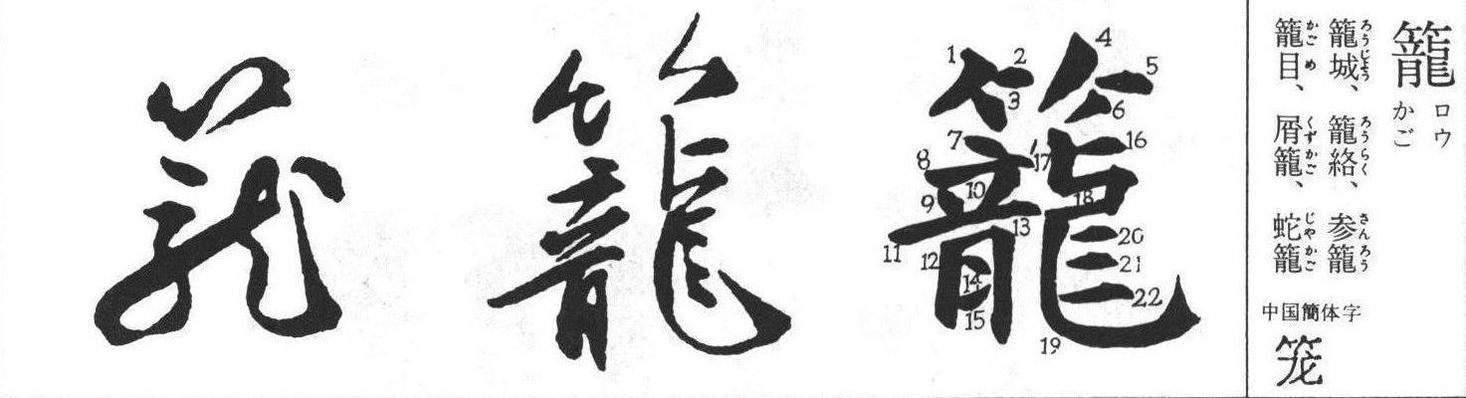 籠
ロウ
かご
籠城、籠絡、参籠
ろうじょう ろうらく さんろう
籠目、屑籠、蛇籠
かごめ くずかご じゃかご
中国簡体字
笼
籠
1 2 3 4 5 6 7 8 9 10 11 12 13 14 15 16 17 18 19 20 21 22
籠
籠